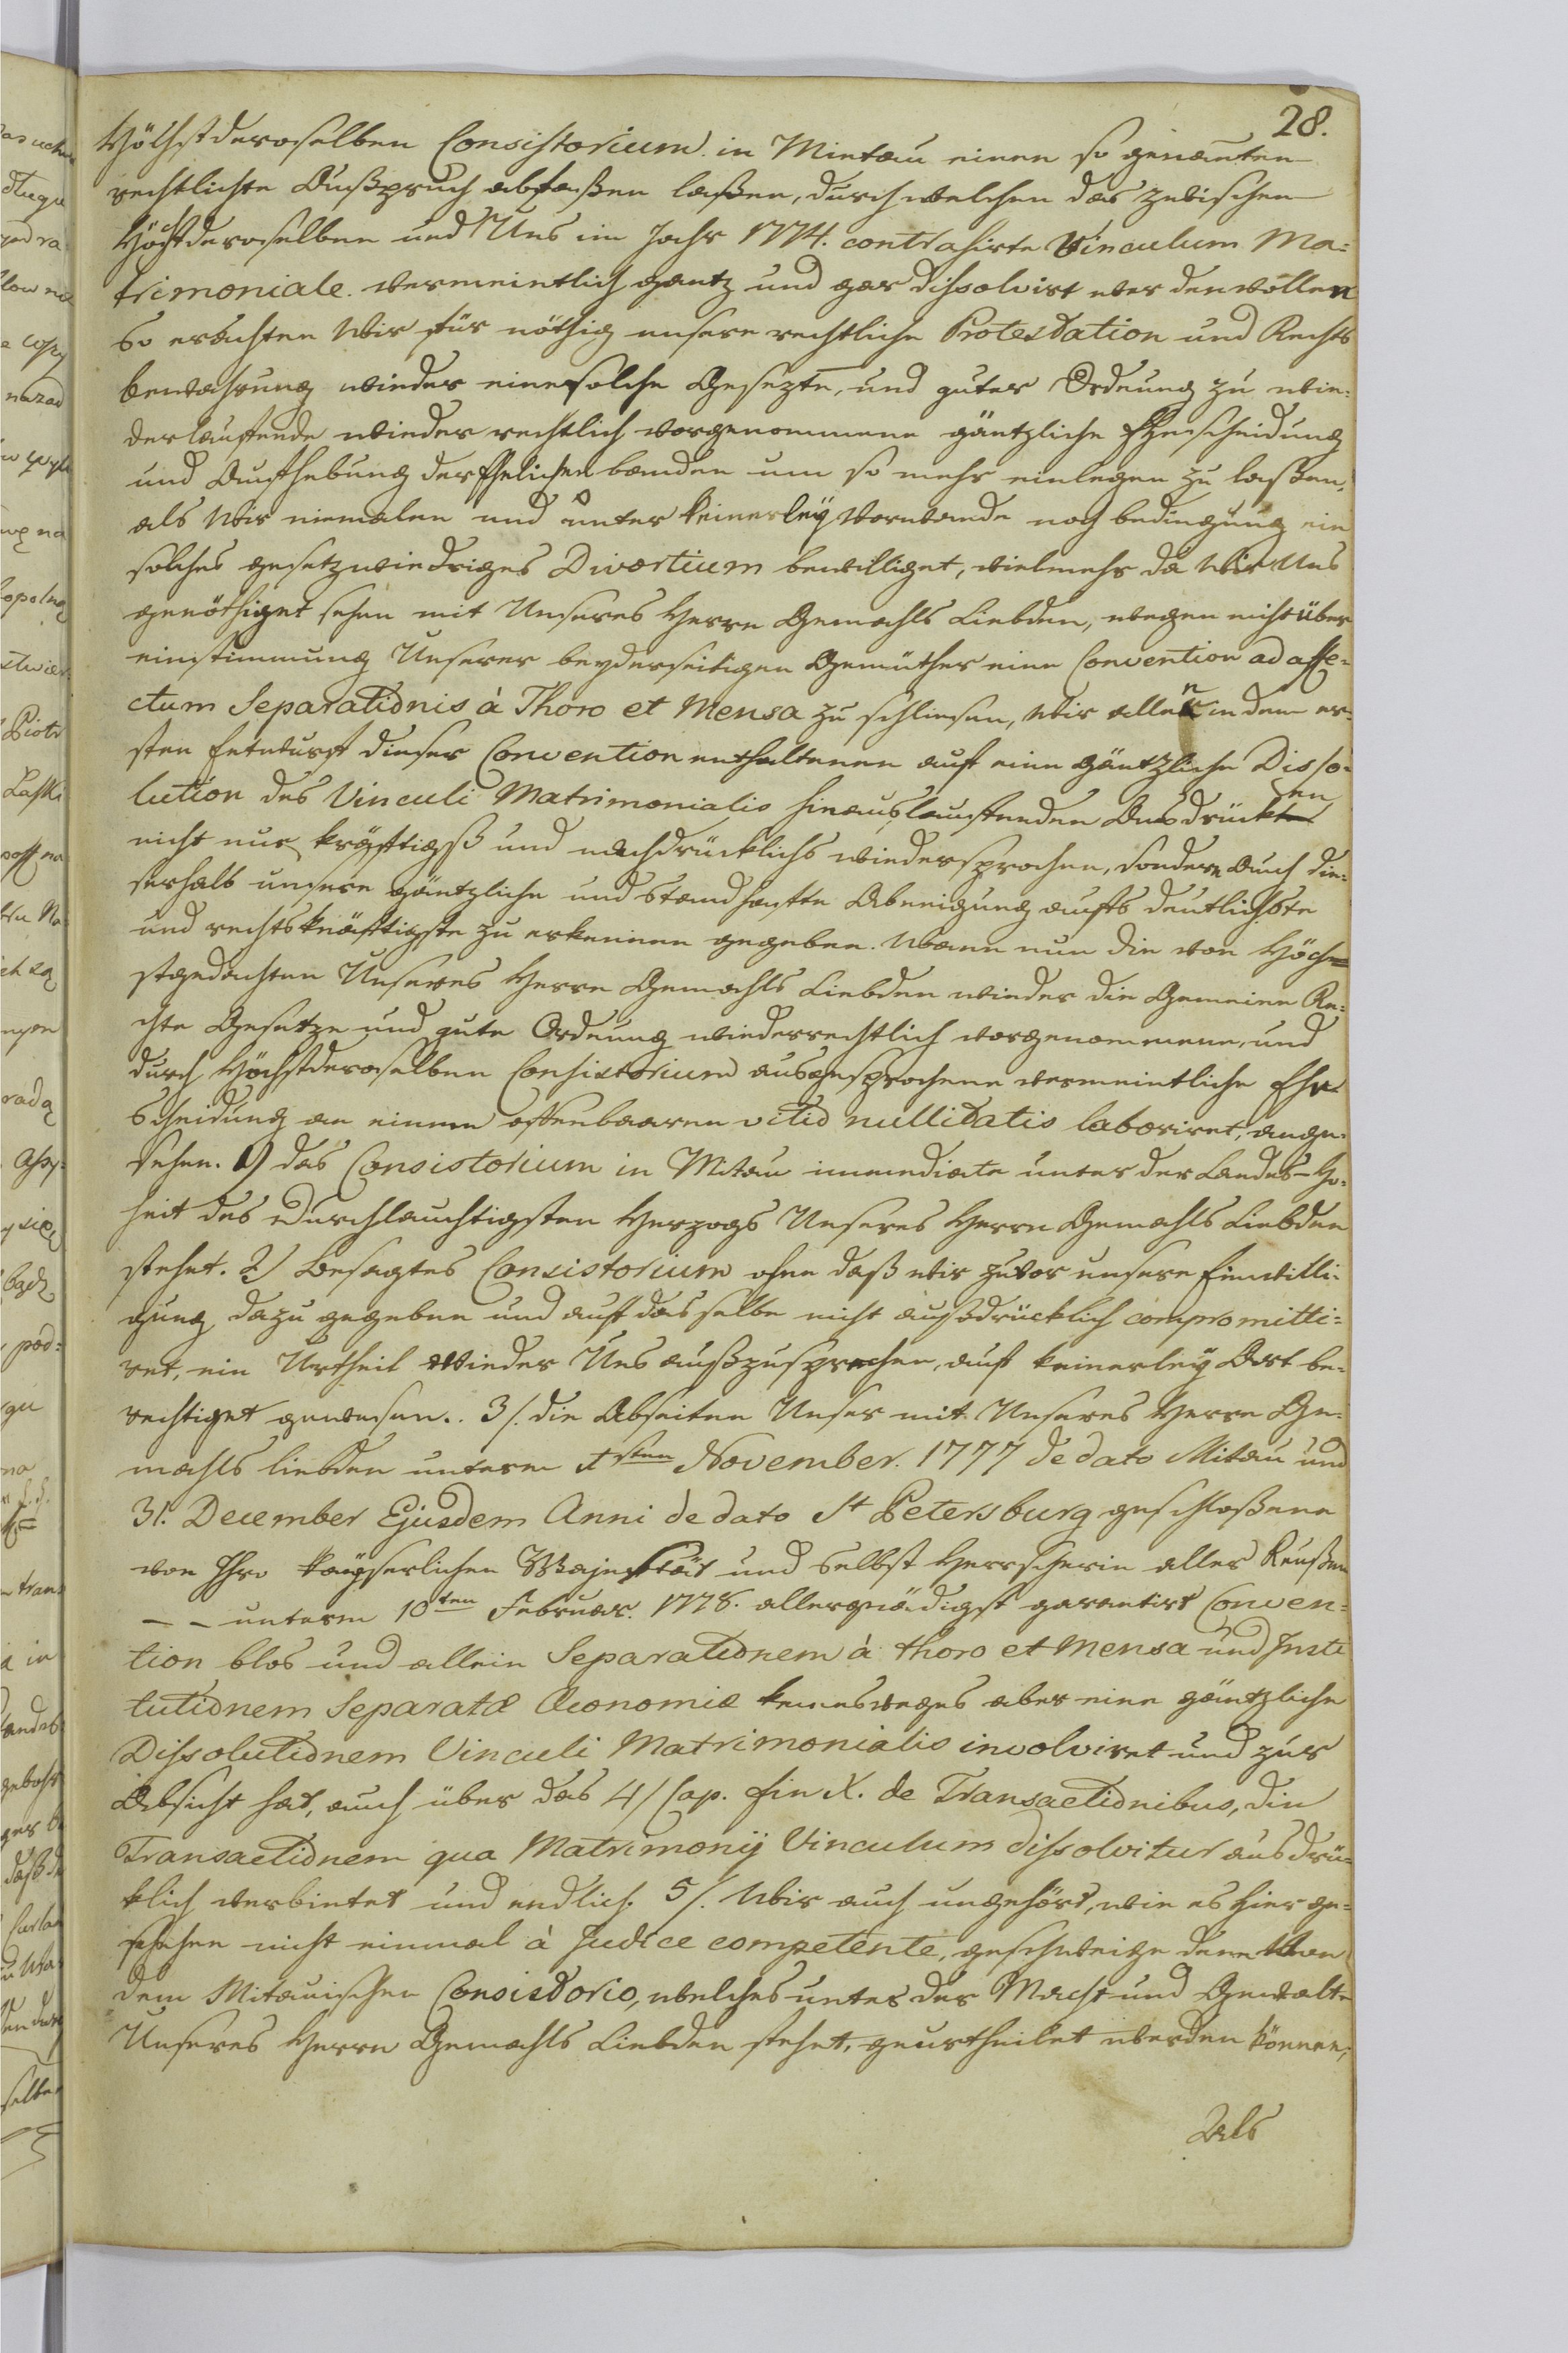 28.
Höchstderoselben Consistorium in Mietau einen so genanten
rechtlichte Außspruch abfaßen laßen, durch welchen das zwischen
Höchstderoselben und Uns im Jahr 1774. contrahirte Vinculum Ma-
trimoniale vermeintlich gantz und gar dissolvirt werden wollen
So erachten Wir für nöthig unsere rechtliche Protestation und Rechts
bewahrung wieder eine solche Gesezte, und guter Ordnung zu wie-
derlauffende wieder rechtlich vorgenommene gäntzliche Ehescheidung
und Aufhebung der Ehelichen banden um so mehr einlegen zu laßen,
als Wir niemalen und unter keinerley Vorwande noch bedingung ein
solches gesetzwiedriges Divortium bewilliget, vielmehr da Wir Uns
genöthiget sehen mit Unseres Herrn Gemahls Liebden, wegen nicht über
einstimmung Unserer beyderseitigen Gemüther eine Convention ad affe-
ctum Separationis à Thoro et Mensa zu schliesen, Wir allen in dem er-
sten Entwurf dieser Convention enthaltenen auf eine gäntzliche Disso-
lution des Vinculi Matrimonialis hinauslauffenden Ausdrücken
nicht nur kräfftigst und nachdrücklichs wiedersprochen, sondern auch die-
serhalb unsere gäntzliche und standhaffte Abneigung aufs deutlichste
und rechtskräfftigste zu erkennen gegeben. Wann nun die von Höch-
stgedachten Unseres Herrn Gemahls Liebden wieder die Gemeine Re-
chte Gesetze und gute Ordnung wiederrechtlich vorgenommene, und
durch Höchstderoselben Consistorium ausgesprochene vermeintliche Ehe
Scheidung an einem offenbaaren vitio nullitatis laboriret, ange-
sehen. 1) das Consistorium in Mitau immediate unter der Landes-Ho-
heit des Durchlauchtigsten Herzogs Unseres Herrn Gemahls Liebden
stehet. 2) besagtes Consistorium ohne daß wir zuvor unsere Einwilli-
gung dazu gegeben und auf dasselbe nicht außdrücklich compromitti-
ret, ein Urtheil wieder Uns außzusprechen, auf keinerley Art be-
rechtiget gewesen. 3/. die Abseiten Unser mit Unseres Herrn Ge-
mahls liebden unterm sten November. 1777 de dato Mitau und
31. December Ejusdem Anni de dato St Petersburg geschloßene
von Ihro Kayserlichen Majestät und Selbst Herrscherin aller Reußen
– – unterm 10ten Februar. 1778. allergnädigst garantirt Conven-
tion blos und allein Separationem à thoro et Mensa und Insti
tutionem Separatæ Œconomiæ keinesweges aber eine gäntzliche
Dissolutionem Vinculi Matrimonialis involviret und zur
Absicht hat, auch über das 4/ Cap. fin X. de Transactionibus, die
Transactionem qua Matrimonij Vinculum dissolvitur ausdrü-
klich verbietet und endlich 5/. Wir auch ungehört, wie es hier ge-
schehen nicht einmal à Judice competente, geschweige denn von
dem Mitauischen Consistorio, welches unter der Macht und Gewalt
Unseres Herrn Gemahls Liebden stehet, geurtheilet werden können;
Als